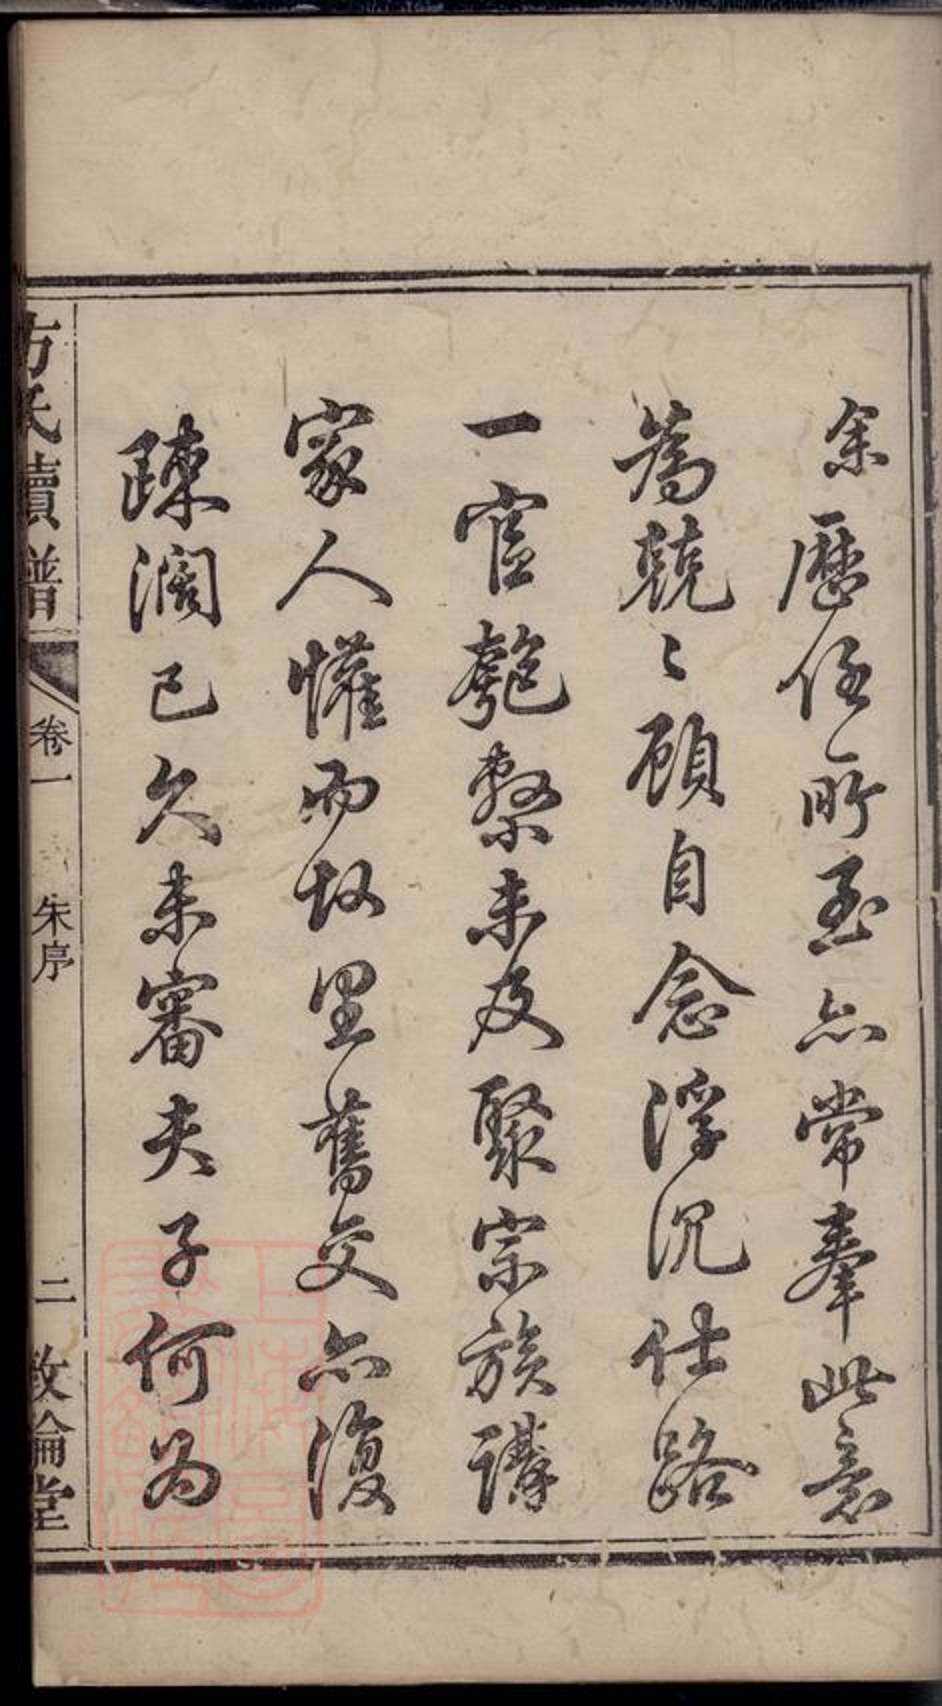 余歷任所至亦常奉此意
為兢〻顧自念浮沉仕路
一官匏繫未及聚宗族講
家人懽而故里舊交亦復
踈濶已久未審夫子何为
方氏續譜
卷一
朱序
二
敦倫堂